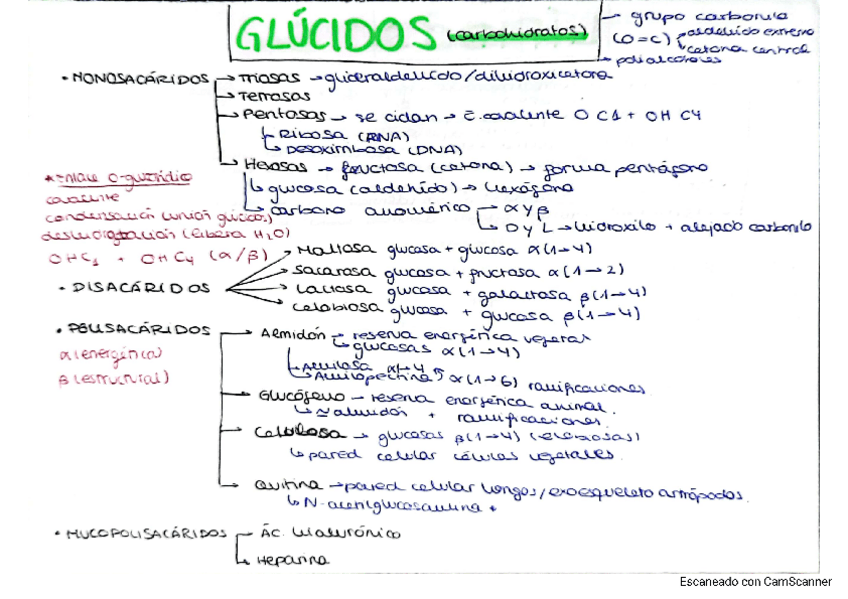 GLÚCIDOS (carbohidratos)
→ grupo carbonilo
(O=C) → aldehído extremo
→ cetona central
→ polialcoholes
• MONOSACÁRIDOS → Triosas → gliceraldehído/dihidroxicetona
→ Tetrosas
→ Pentosas → se ciclan → E. covalente O C1 + OH C4
↳ Ribosa (RNA)
↳ Desoxirribosa (DNA)
→ Hexosas → fructosa (cetona) → forma pentágono
↳ glucosa (aldehído) → hexágono
↳ carbono anomérico → α y β
↳ D y L → hidroxilo + alejado carbonilo
* Enlace O-glucosídico
covalente
condensación (unión glúcidos)
deshidratación (libera H2O)
OHC1 + OHC4 (α/β)
• DISACÁRIDOS
Maltosa glucosa + glucosa α(1→4)
Sacarosa glucosa + fructosa α(1→2)
Lactosa glucosa + galactosa β(1→4)
Celobiosa glucosa + glucosa β(1→4)
• POLISACÁRIDOS
α (energética)
β (estructural)
→ Almidón → reserva energética vegetal
↳ glucosas α(1→4)
↳ Amilosa α1→4
↳ Amilopectina α(1→6) ramificaciones
→ Glucógeno → reserva energética animal.
↳ ≈ almidón + ramificaciones
→ Celulosa → glucosas β(1→4)
↳ pared celular células vegetales.
→ Quitina → pared celular hongos/exoesqueleto artrópodos.
↳ N-acetilglucosamina +
• MUCOPOLISACÁRIDOS → Ác. hialurónico
↳ Heparina
Escaneado con CamScanner